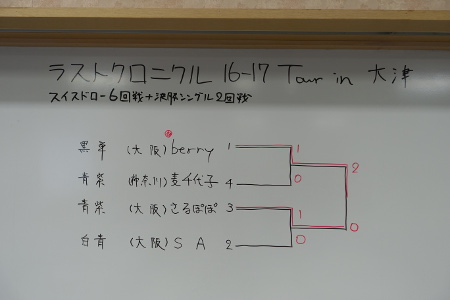 ラストクロニクル 16-17 Tour in 大津
スイスドロー6回戦+決勝シングル2回戦
黒単 (大阪) berry 1 1
2
青紫 (神奈川) 麦千代子 4 0
青紫 (大阪) さるぽぽ 3 1
0
白青 (大阪) S A 2 0